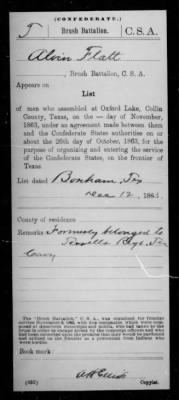 (CONFEDERATE.)
F Brush Battalion. C. S. A.
Alvin Flatt
, Brush Battalion, C. S. A.
Appears on
List
of men who assembled at Oxford Lake, Collin
County, Texas, on the — day of November,
1863, under an agreement made between them
and the Confederate States authorities on or
about the 26th day of October, 1863, for the
purpose of organizing and entering the service
of the Confederate States, on the frontier of
Texas.
List dated Bonham, Tex
Dec 12, 1863.
County of residence
Remarks Formerly belonged to
Regt. Tex
Cavry
The "Brush Battalion," C. S. A., was organized for frontier
service November 1863, with five companies, which were
composed of deserters and
who had taken to the
brush in order to escape arrest by the
officers and who had
been induced to
that they would be pardoned and
utilized on the frontier as a protection from Indians who
were hostile.
Book mark:
Copyist.